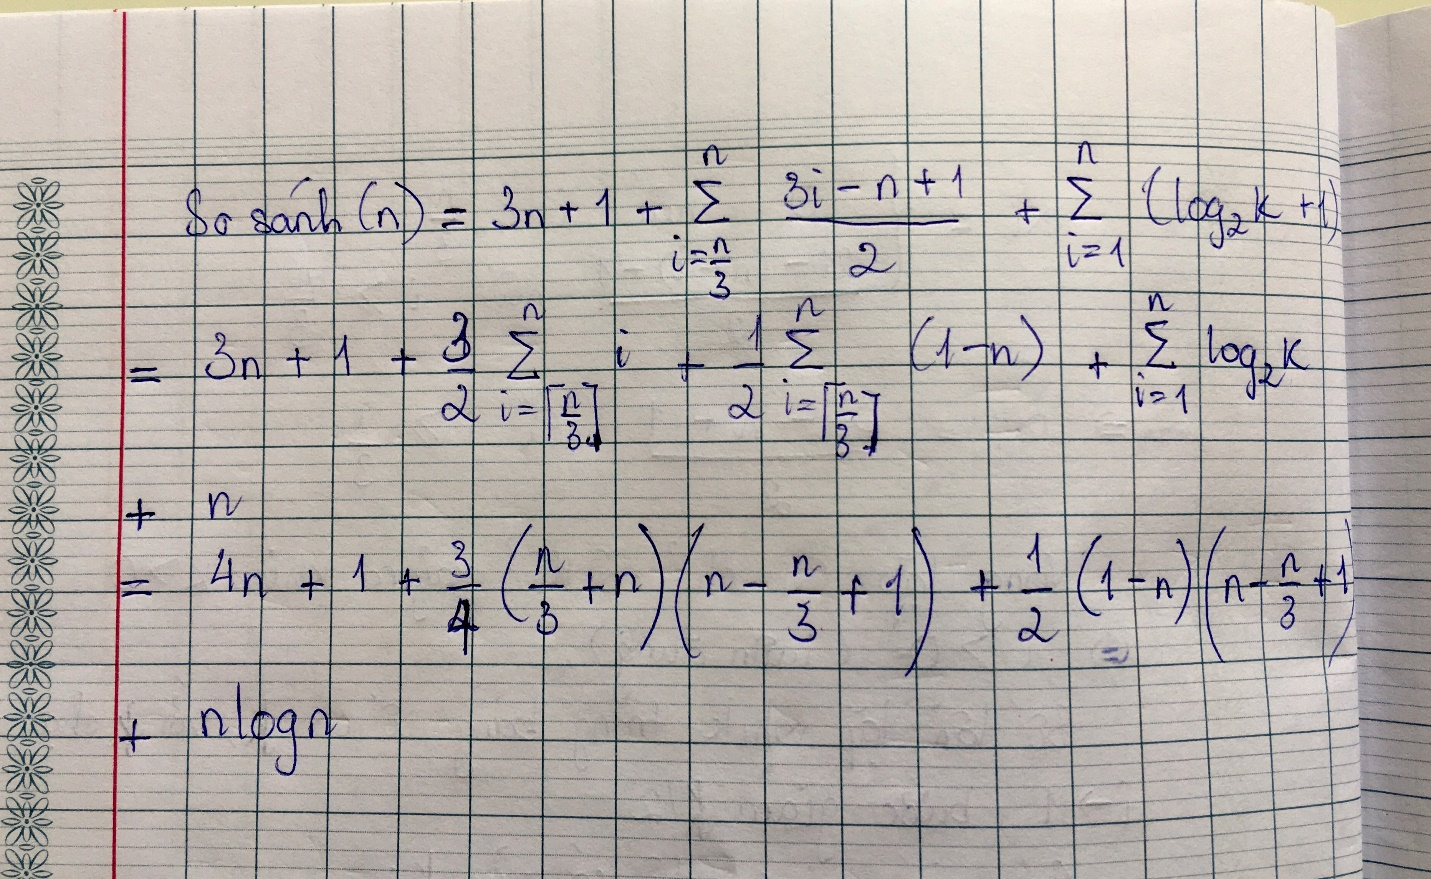 So sánh (n) = 3n + 1 + \sum_{i=\frac{n}{3}}^{n} \frac{3i - n + 1}{2} + \sum_{i=1}^{n} (log_2 k + 1)
= 3n + 1 + \frac{3}{2} \sum_{i=\lceil \frac{n}{3} \rceil}^{n} i + \frac{1}{2} \sum_{i=\lceil \frac{n}{3} \rceil}^{n} (1-n) + \sum_{i=1}^{n} log_2 k
+ n
= 4n + 1 + \frac{3}{4} (\frac{n}{3} + n) (n - \frac{n}{3} + 1) + \frac{1}{2} (1-n) (n - \frac{n}{3} + 1)
+ nlogn